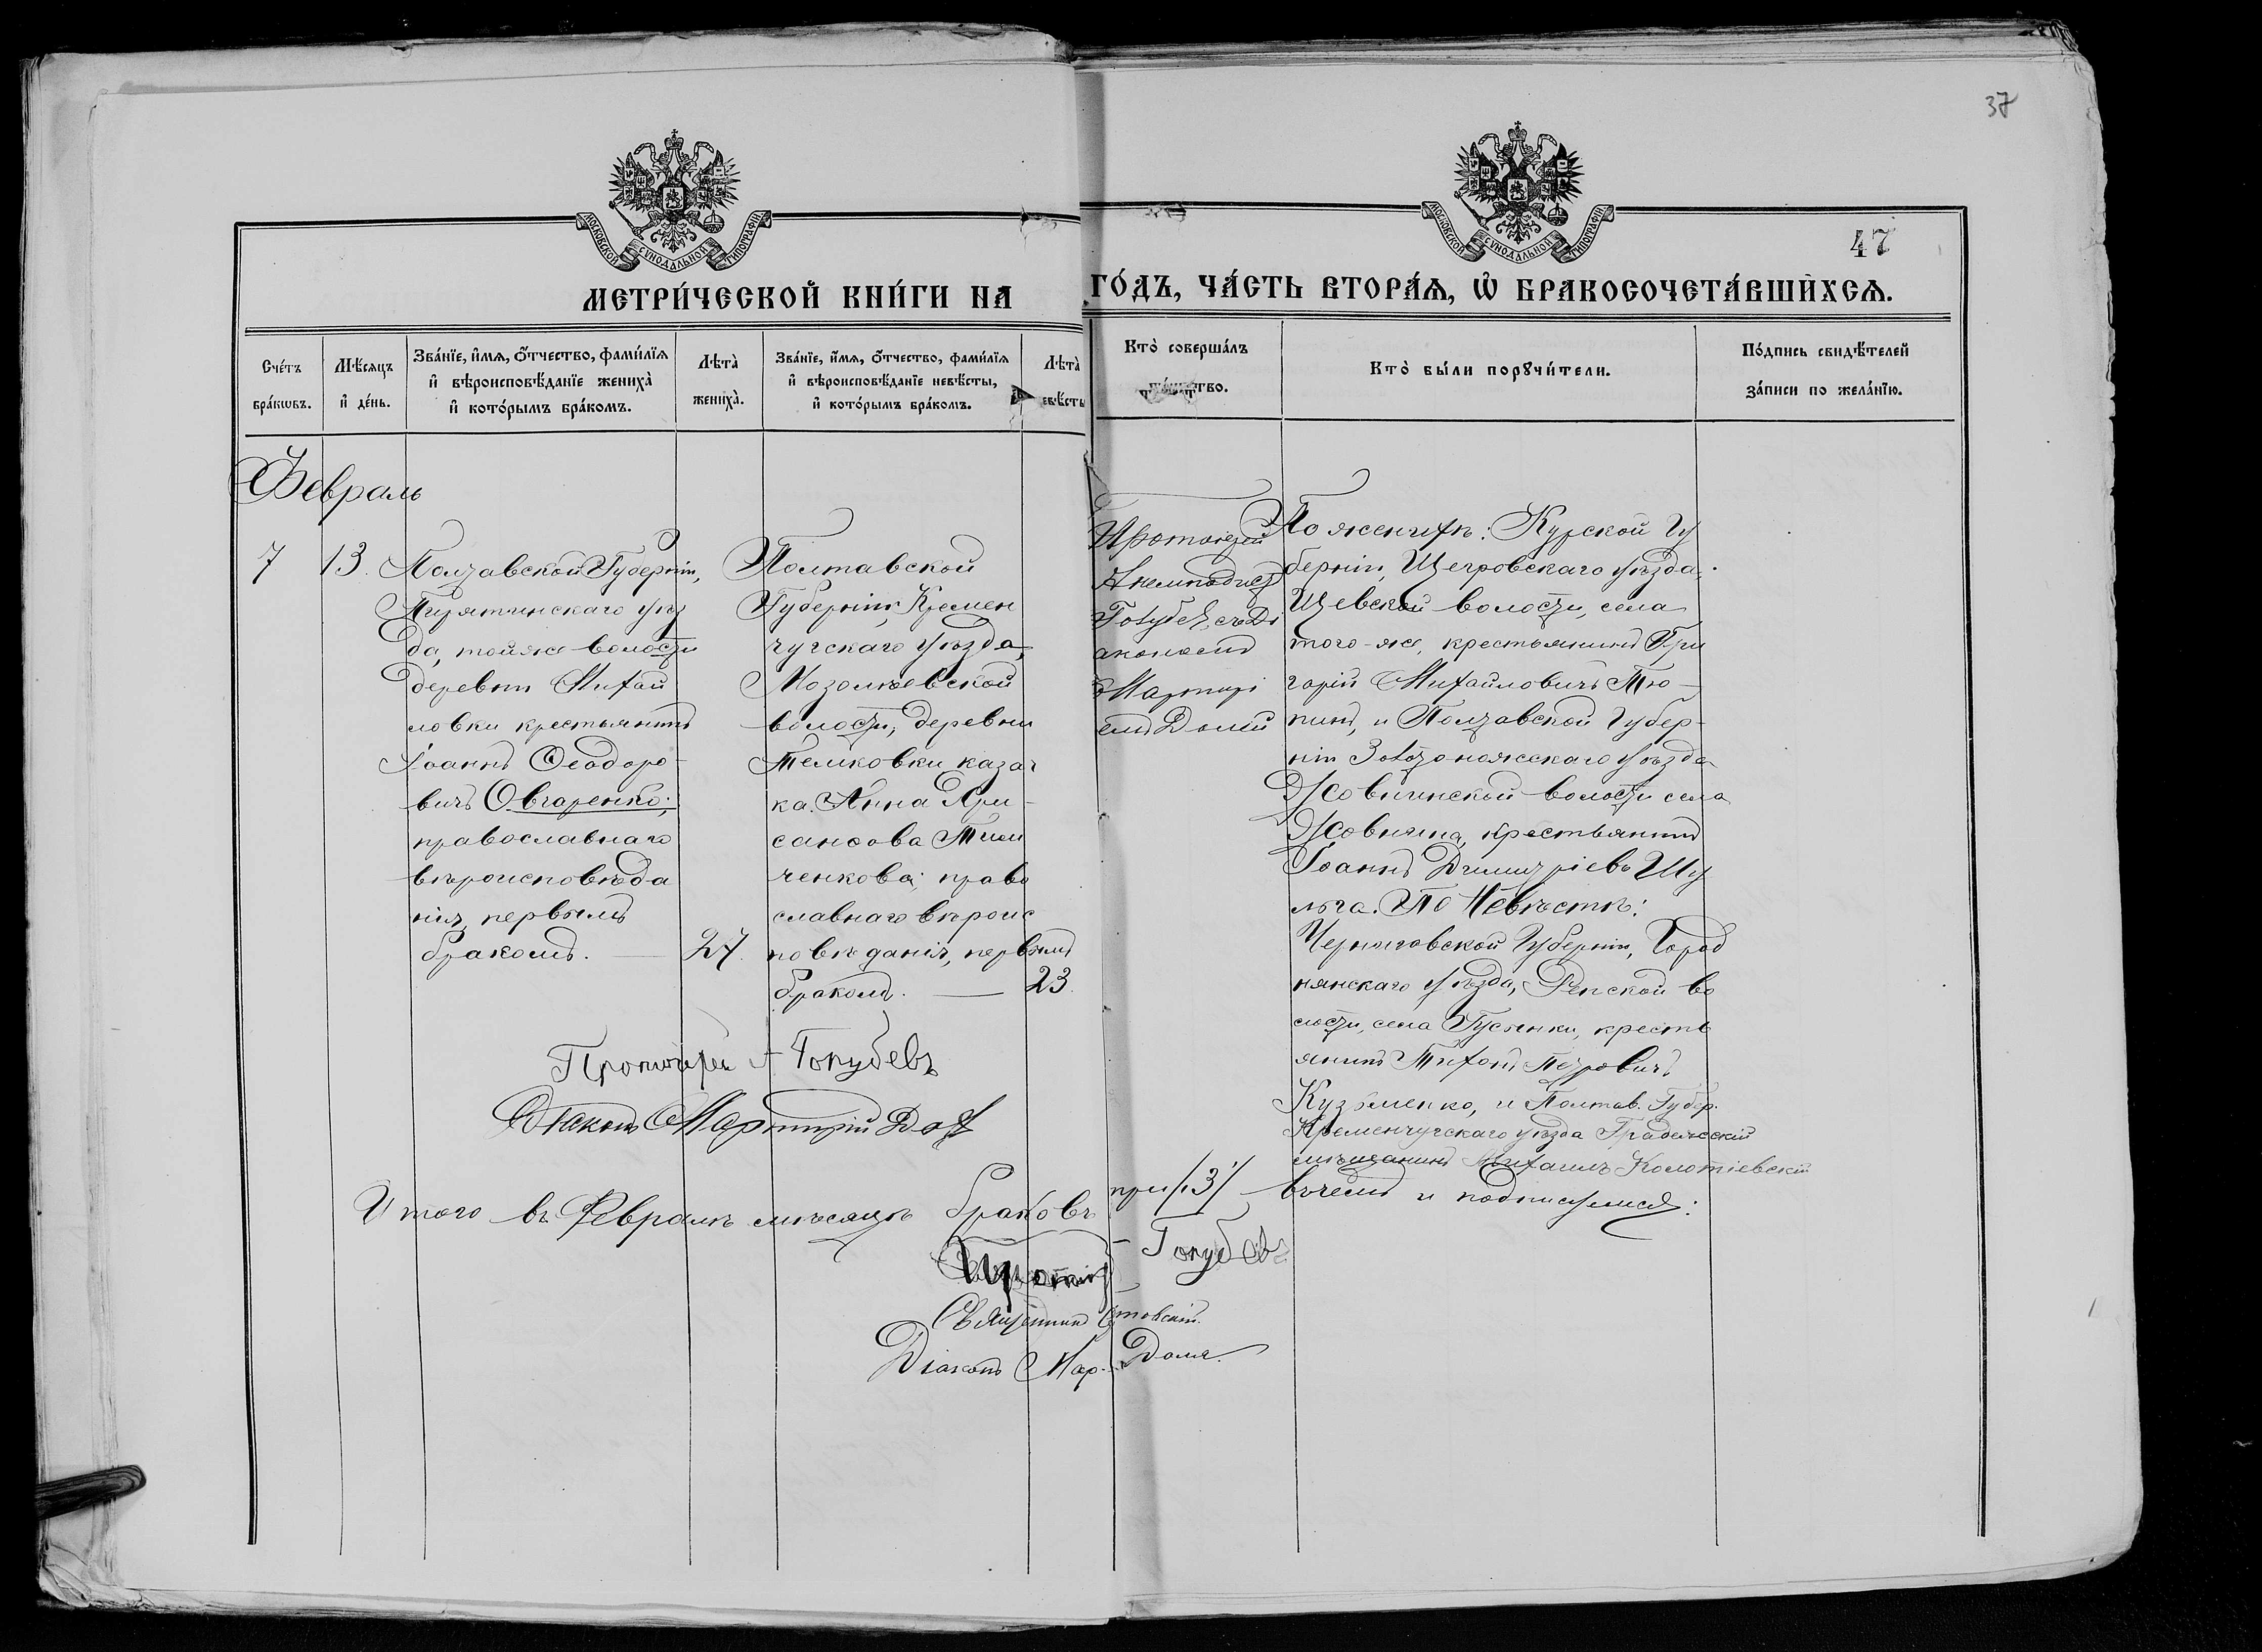 37
МОСКОВСКОЙ СУНОДАЛЬНОЙ ТИПОГРАФІИ
МОСКОВСКОЙ СУНОДАЛЬНОЙ ТИПОГРАФІИ
47
МЕТРИ́ЧЕСКОЙ КНИ́ГИ НА ГО́ДЪ, ЧА́СТЬ ВТОРА́Ѧ, Ѽ БРАКОСОЧЕТА́ВШИХСѦ.
Сче́тъ бра́кωвъ.
Мѣ́сяцъ и де́нь.
Зва́нїе, и́мѧ, ѻ́тчество, фами́лїѧ и вѣроисповѣ́данїе жениха̀ и кото́рымъ бра́комъ.
Лѣта̀ жениха̀.
Зва́нїе, и́мѧ, ѻ́тчество, фами́лїѧ и вѣроисповѣ́данїе невѣ́сты, и кото́рымъ бра́комъ.
Лѣта̀ евѣ́сты
Кто̀ соверша́лъ та́инство.
Кто̀ бы́ли порꙋчи́тели.
По́дпись свидѣ́телей за́писи по жела́нїю.
Февраль
7
13.
Полтавской Губерніи,
Пирятинскаго уѣз
да, той же волости
деревни Михай
ловки крестьянинъ
Іоаннъ Ѳеодоро-
вичъ Овчаренко,
православнаго
вѣроисповѣда
нія, первымъ
бракомъ. — 27.
Полтавской
Губерніи, Кремен
чугскаго уѣзда,
Мозолѣевской
волости, деревни
казач
ка Анна Хри-
санѳова Тим
ченкова, право
славнаго вѣроис
повѣданія, первымъ
бракомъ. — 23.
Протоіерей
Анемподистъ
Голубевъ съ Ді
акономъ
Мартирі
емъ
По женихѣ: Курской Гу
берніи, Щигровскаго уѣзда,
волости, села
того-же, крестьянинъ Гри
горій Михайловичъ Тю-
пинъ, и Полтавской Губер-
ніи Золотоношскаго уѣзда
Жовнинской волости села
Жовнина, крестьянинъ
Іоаннъ Димитріевъ Шу
льга. По Невѣстѣ:
Черниговской Губерніи, Город
нянскаго уѣзда, Репской во
лости, села Гусинки, кресть
янинъ Тихонъ Петровичъ
Кузьменко, и Полтав. Губер.
Кременчугскаго уѣзда Градижскій
мѣщанинъ Михаилъ Коломіевскій
Протоіерей А Голубевъ
Діаконъ Мартирій
Итого въ Февралѣ мѣсяцѣ браковъ при /13/ въ чемъ и подписуемся:
Голубевъ
Священникъ
Діаконъ Мар.